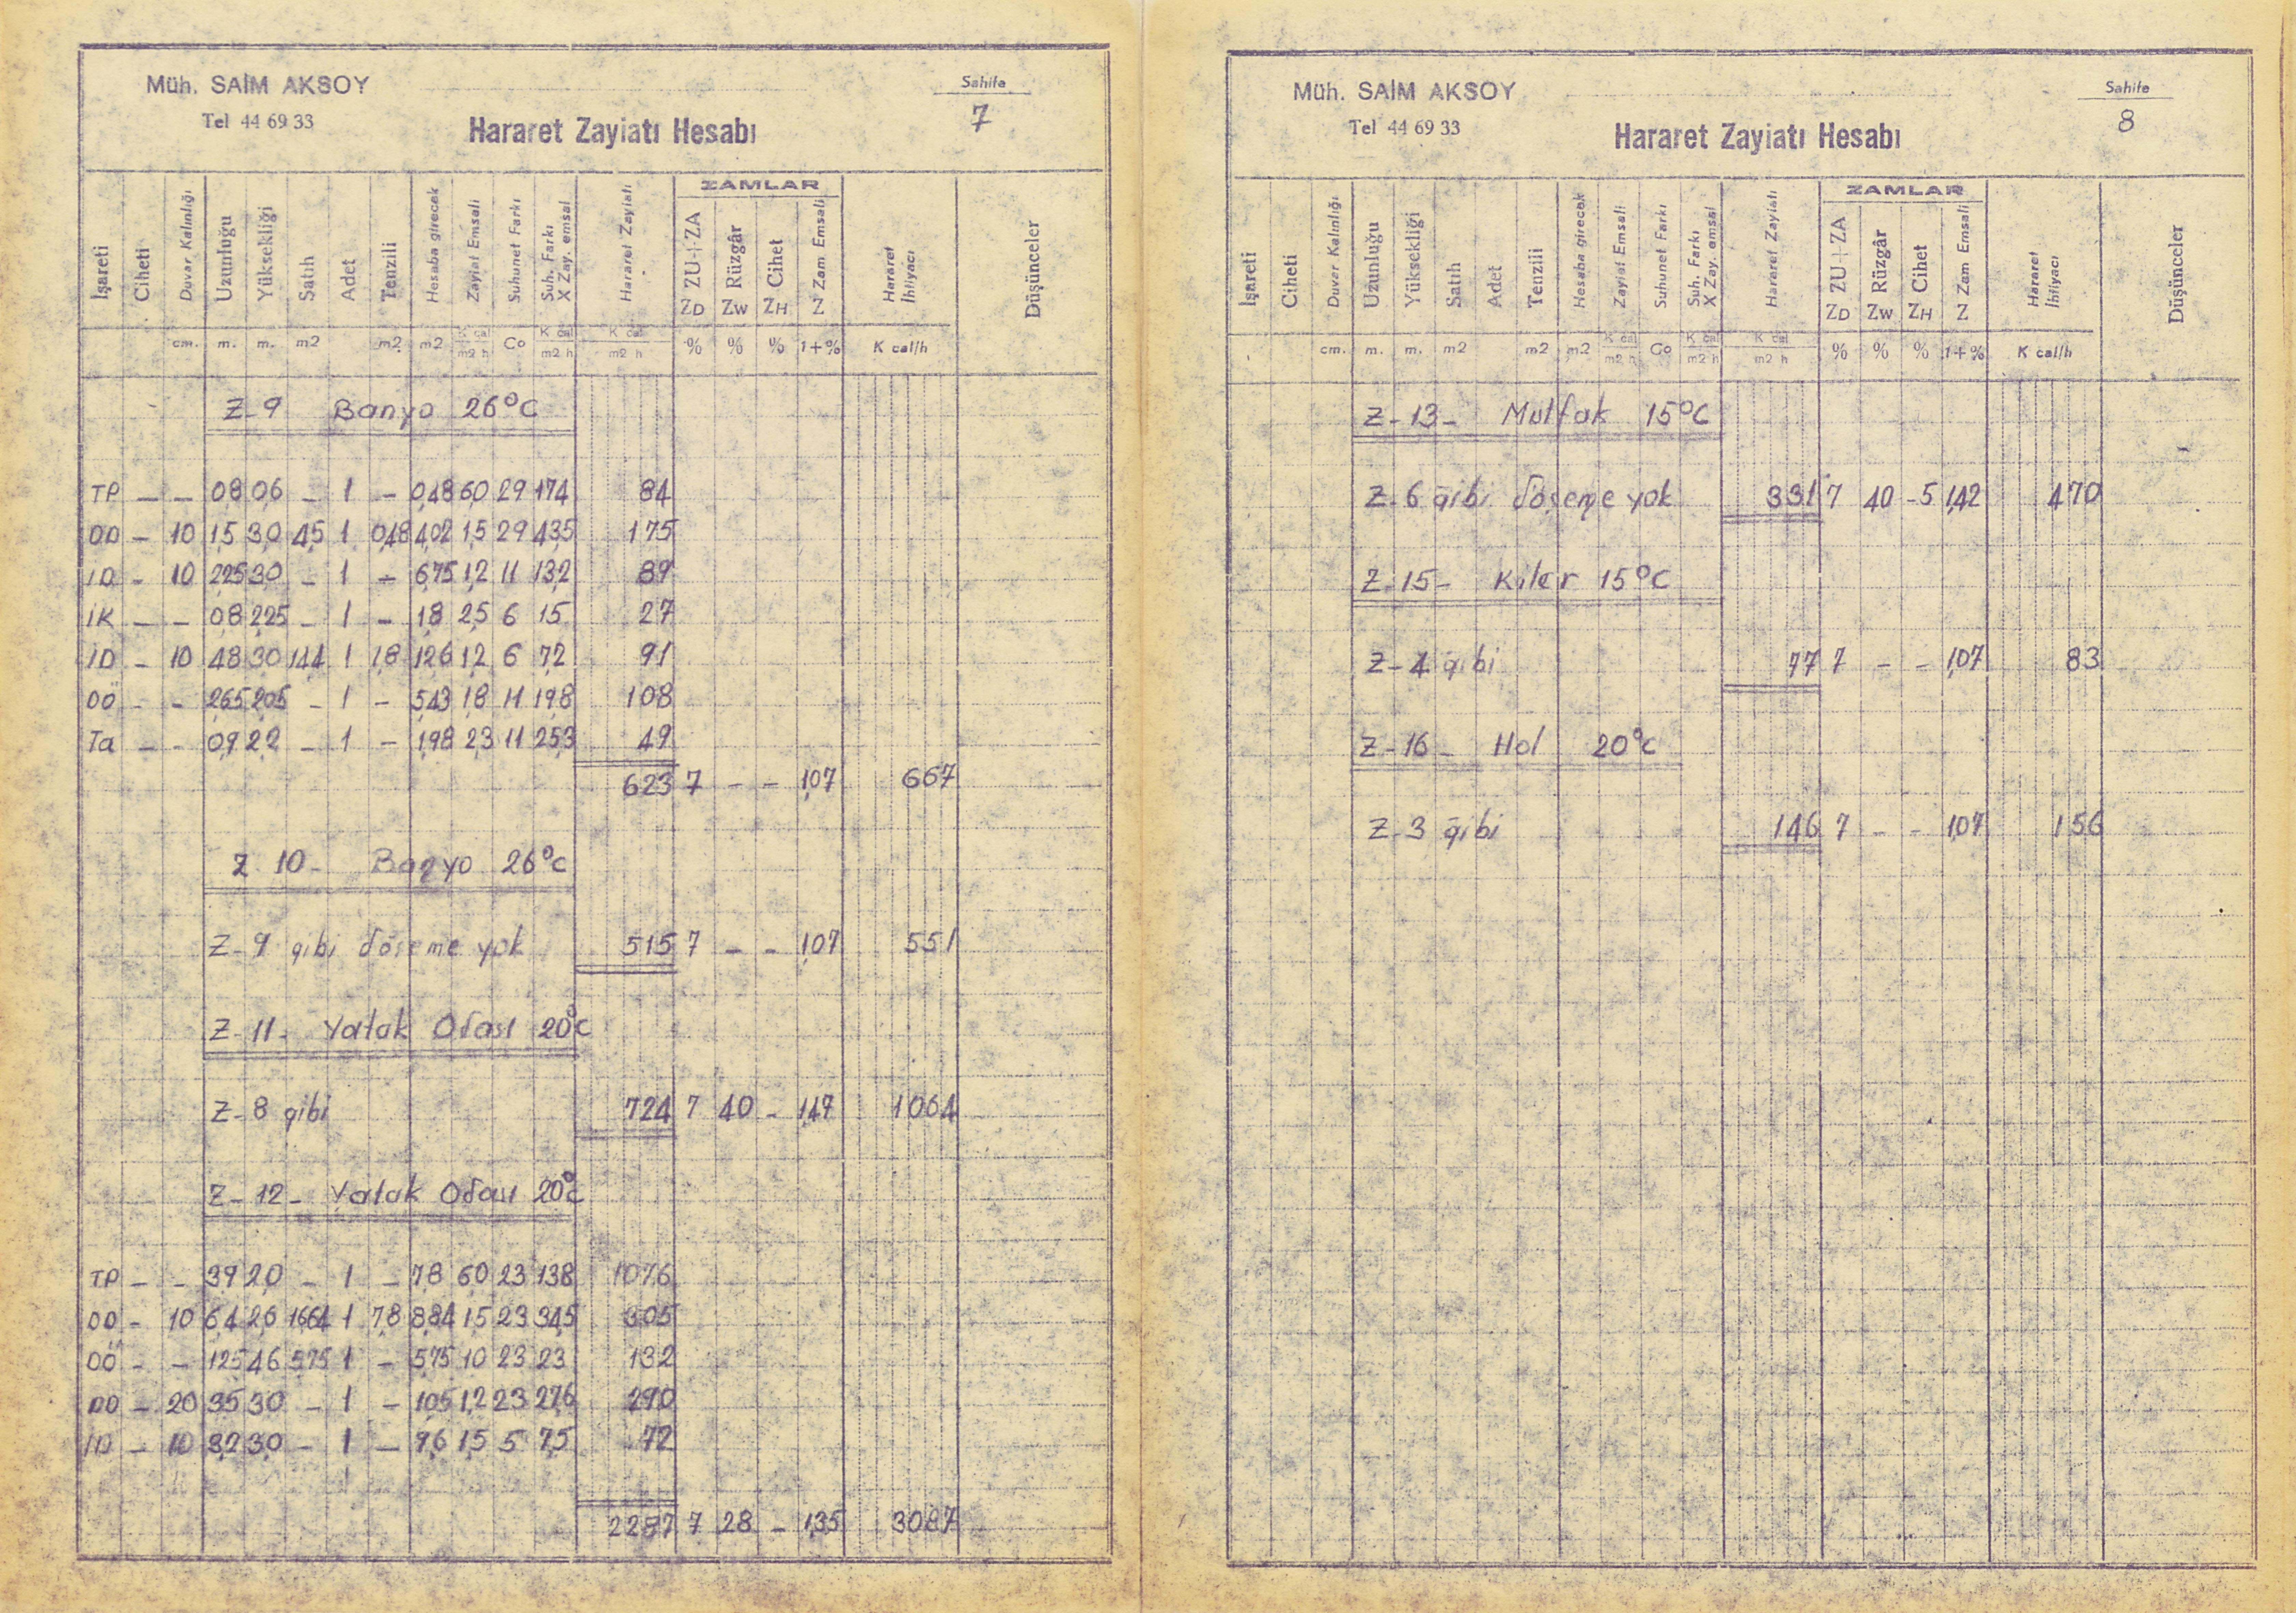 Müh. SAİM AKSOY
Tel 44 69 33
Hararet Zayiatı Hesabı
Sahife
7
İşareti Ciheti Duvar Kalınlığı Uzunluğu Yüksekliği Satıh Adet Tenzili Hesaba girecek Zayiat Emsali Suhunet Farkı Suh. Farkı X Zay. emsal Hararet Zayiatı ZAMLAR ZU+ZA ZD Rüzgâr Zw Cihet ZH Zam Emsali Z Hararet İhtiyacı Düşünceler
cm. m. m. m2 m2 m2 K cal m2 h Co K cal m2 h K cal m2 h % % % 1+% K cal/h
Z-9 Banyo 26°C
TP — — 0,8 0,6 — 1 — 0,48 6,0 29 174 84
DD — 10 1,5 3,0 4,5 1 0,48 4,02 1,5 29 43,5 175
İD — 10 2,25 3,0 — 1 — 6,75 1,2 11 13,2 89
İK — — 0,8 2,25 — 1 — 1,8 2,5 6 15 27
İD — 10 4,8 3,0 14,4 1 1,8 12,6 1,2 6 7,2 91
DÖ — — 2,65 2,05 — 1 — 5,43 1,8 11 19,8 108
Ta — — 0,9 2,2 — 1 — 1,98 2,3 11 25,3 49
623 7 — — 1,07 667
Z 10- Banyo 26°C
Z-9 gibi döşeme yok 515 7 — — 1,07 551
Z-11- Yatak Odası 20°C
Z-8 gibi 724 7 40 — 1,47 1064
Z-12- Yatak Odası 20°C
TP — — 3,9 2,0 — 1 — 7,8 6,0 23 138 1076
DD — 10 6,4 2,6 16,64 1 7,8 8,84 1,5 23 34,5 305
DÖ — — 1,25 4,6 5,75 1 — 5,75 1,0 23 23 132
DD — 20 3,5 3,0 — 1 — 10,5 1,2 23 27,6 290
İD — 10 3,2 3,0 — 1 — 9,6 1,5 5 7,5 72
2287 7 28 — 1,35 3087
Müh. SAİM AKSOY
Tel 44 69 33
Hararet Zayiatı Hesabı
Sahife
8
İşareti Ciheti Duvar Kalınlığı Uzunluğu Yüksekliği Satıh Adet Tenzili Hesaba girecek Zayiat Emsali Suhunet Farkı Suh. Farkı X Zay. emsal Hararet Zayiatı ZAMLAR ZU+ZA ZD Rüzgâr Zw Cihet ZH Zam Emsali Z Hararet İhtiyacı Düşünceler
cm. m. m. m2 m2 m2 K cal m2 h Co K cal m2 h K cal m2 h % % % 1+% K cal/h
Z-13- Mutfak 15°C
Z-6 gibi döşeme yok 331 7 40 -5 1,42 470
Z-15- Kiler 15°C
Z-4 gibi 77 7 — — 1,07 83
Z-16- Hol 20°C
Z-3 gibi 146 7 — — 1,07 156